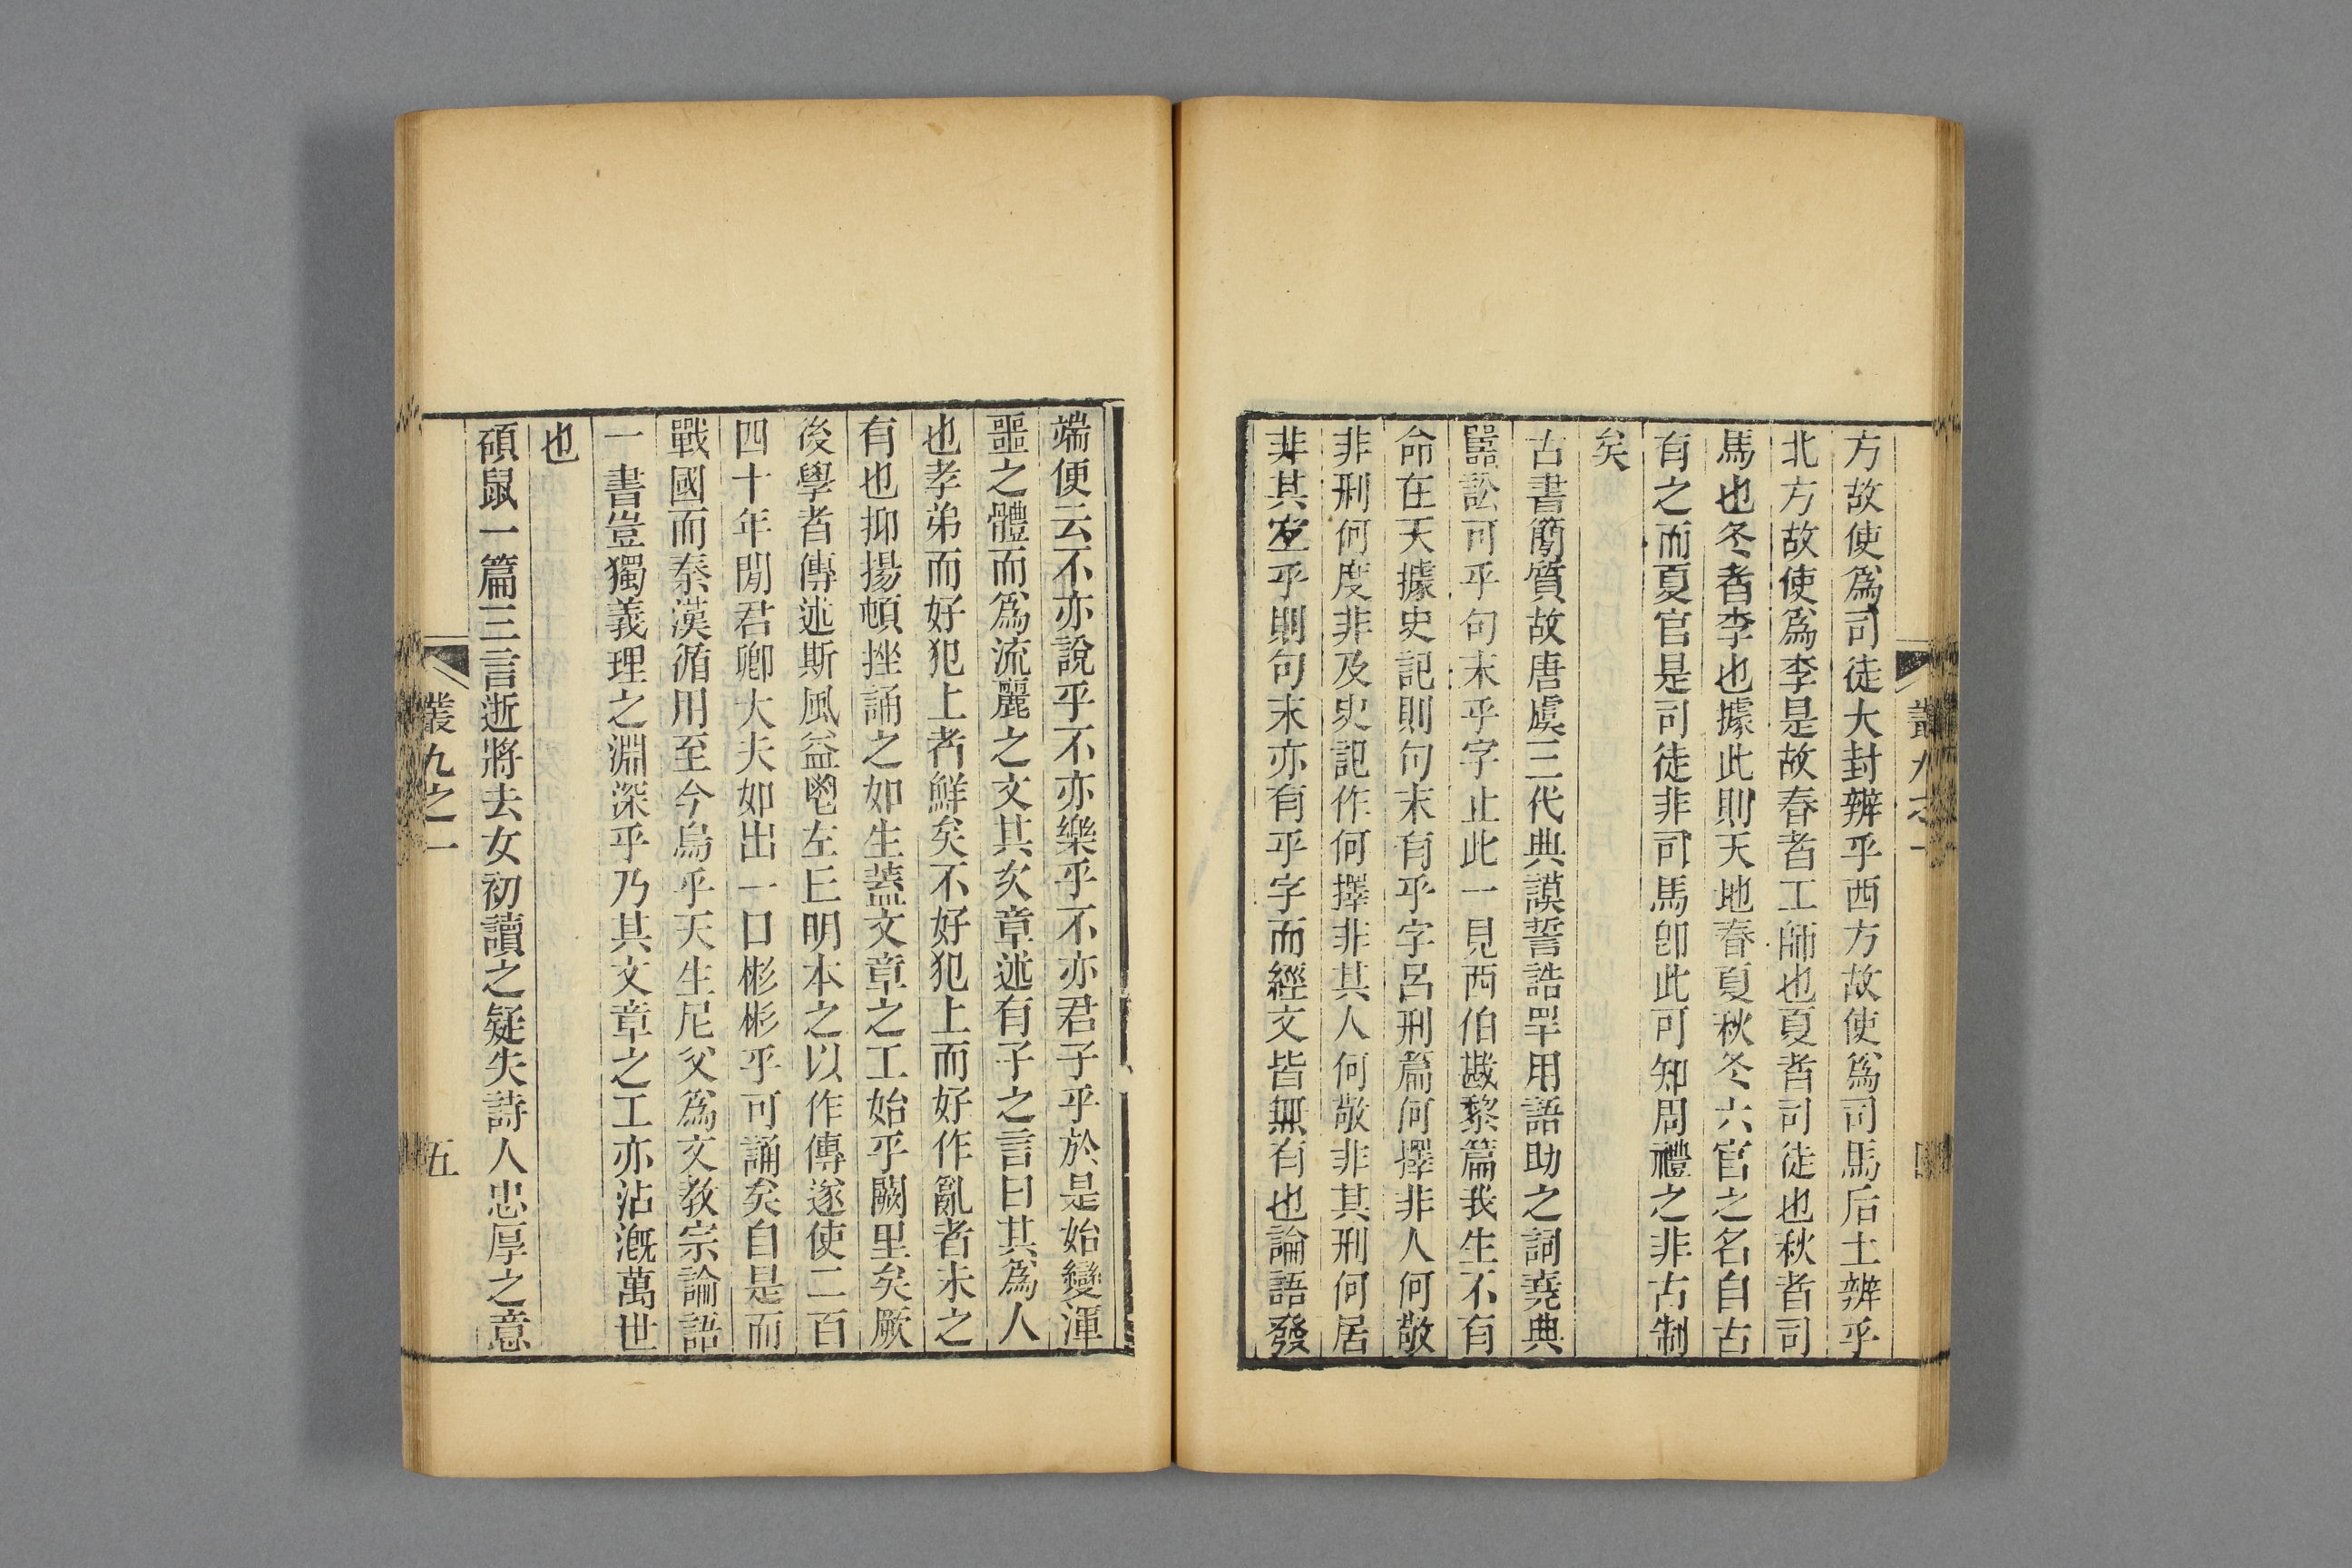 方故使爲司徒大封辨乎西方故使爲司馬后土辨乎
北方故使爲李是故春者工師也夏者司徒也秋者司
馬也冬者李也據此則天地春夏秋冬六官之名自古
有之而夏官是司徒非司馬卽此可知周禮之非古制
矣
古書簡質故唐虞三代典謨誓誥罕用語助之詞堯典
嚚訟可乎句末乎字止此一見西伯戡黎篇我生不有
命在天據史記則句末有乎字呂刑篇何擇非人何敬
非刑何度非及史記作何擇非其人何敬非其刑何居
非其宜乎則句末亦有乎字而經文皆無有也論語發
叢九之一
四
端便云不亦說乎不亦樂乎不亦君子乎於是始變渾
噩之體而爲流麗之文其次章述有子之言曰其爲人
也孝弟而好犯上者鮮矣不好犯上而好作亂者未之
有也抑揚頓挫誦之如生蓋文章之工始乎闕里矣厥
後學者傳述斯風益鬯左丘明本之以作傳遂使二百
四十年閒君卿大夫如出一口彬彬乎可誦矣自是而
戰國而秦漢循用至今烏乎天生尼父爲文教宗論語
一書豈獨義理之淵深乎乃其文章之工亦沾漑萬世
也
碩鼠一篇三言逝將去女初讀之疑失詩人忠厚之意
叢九之一
五